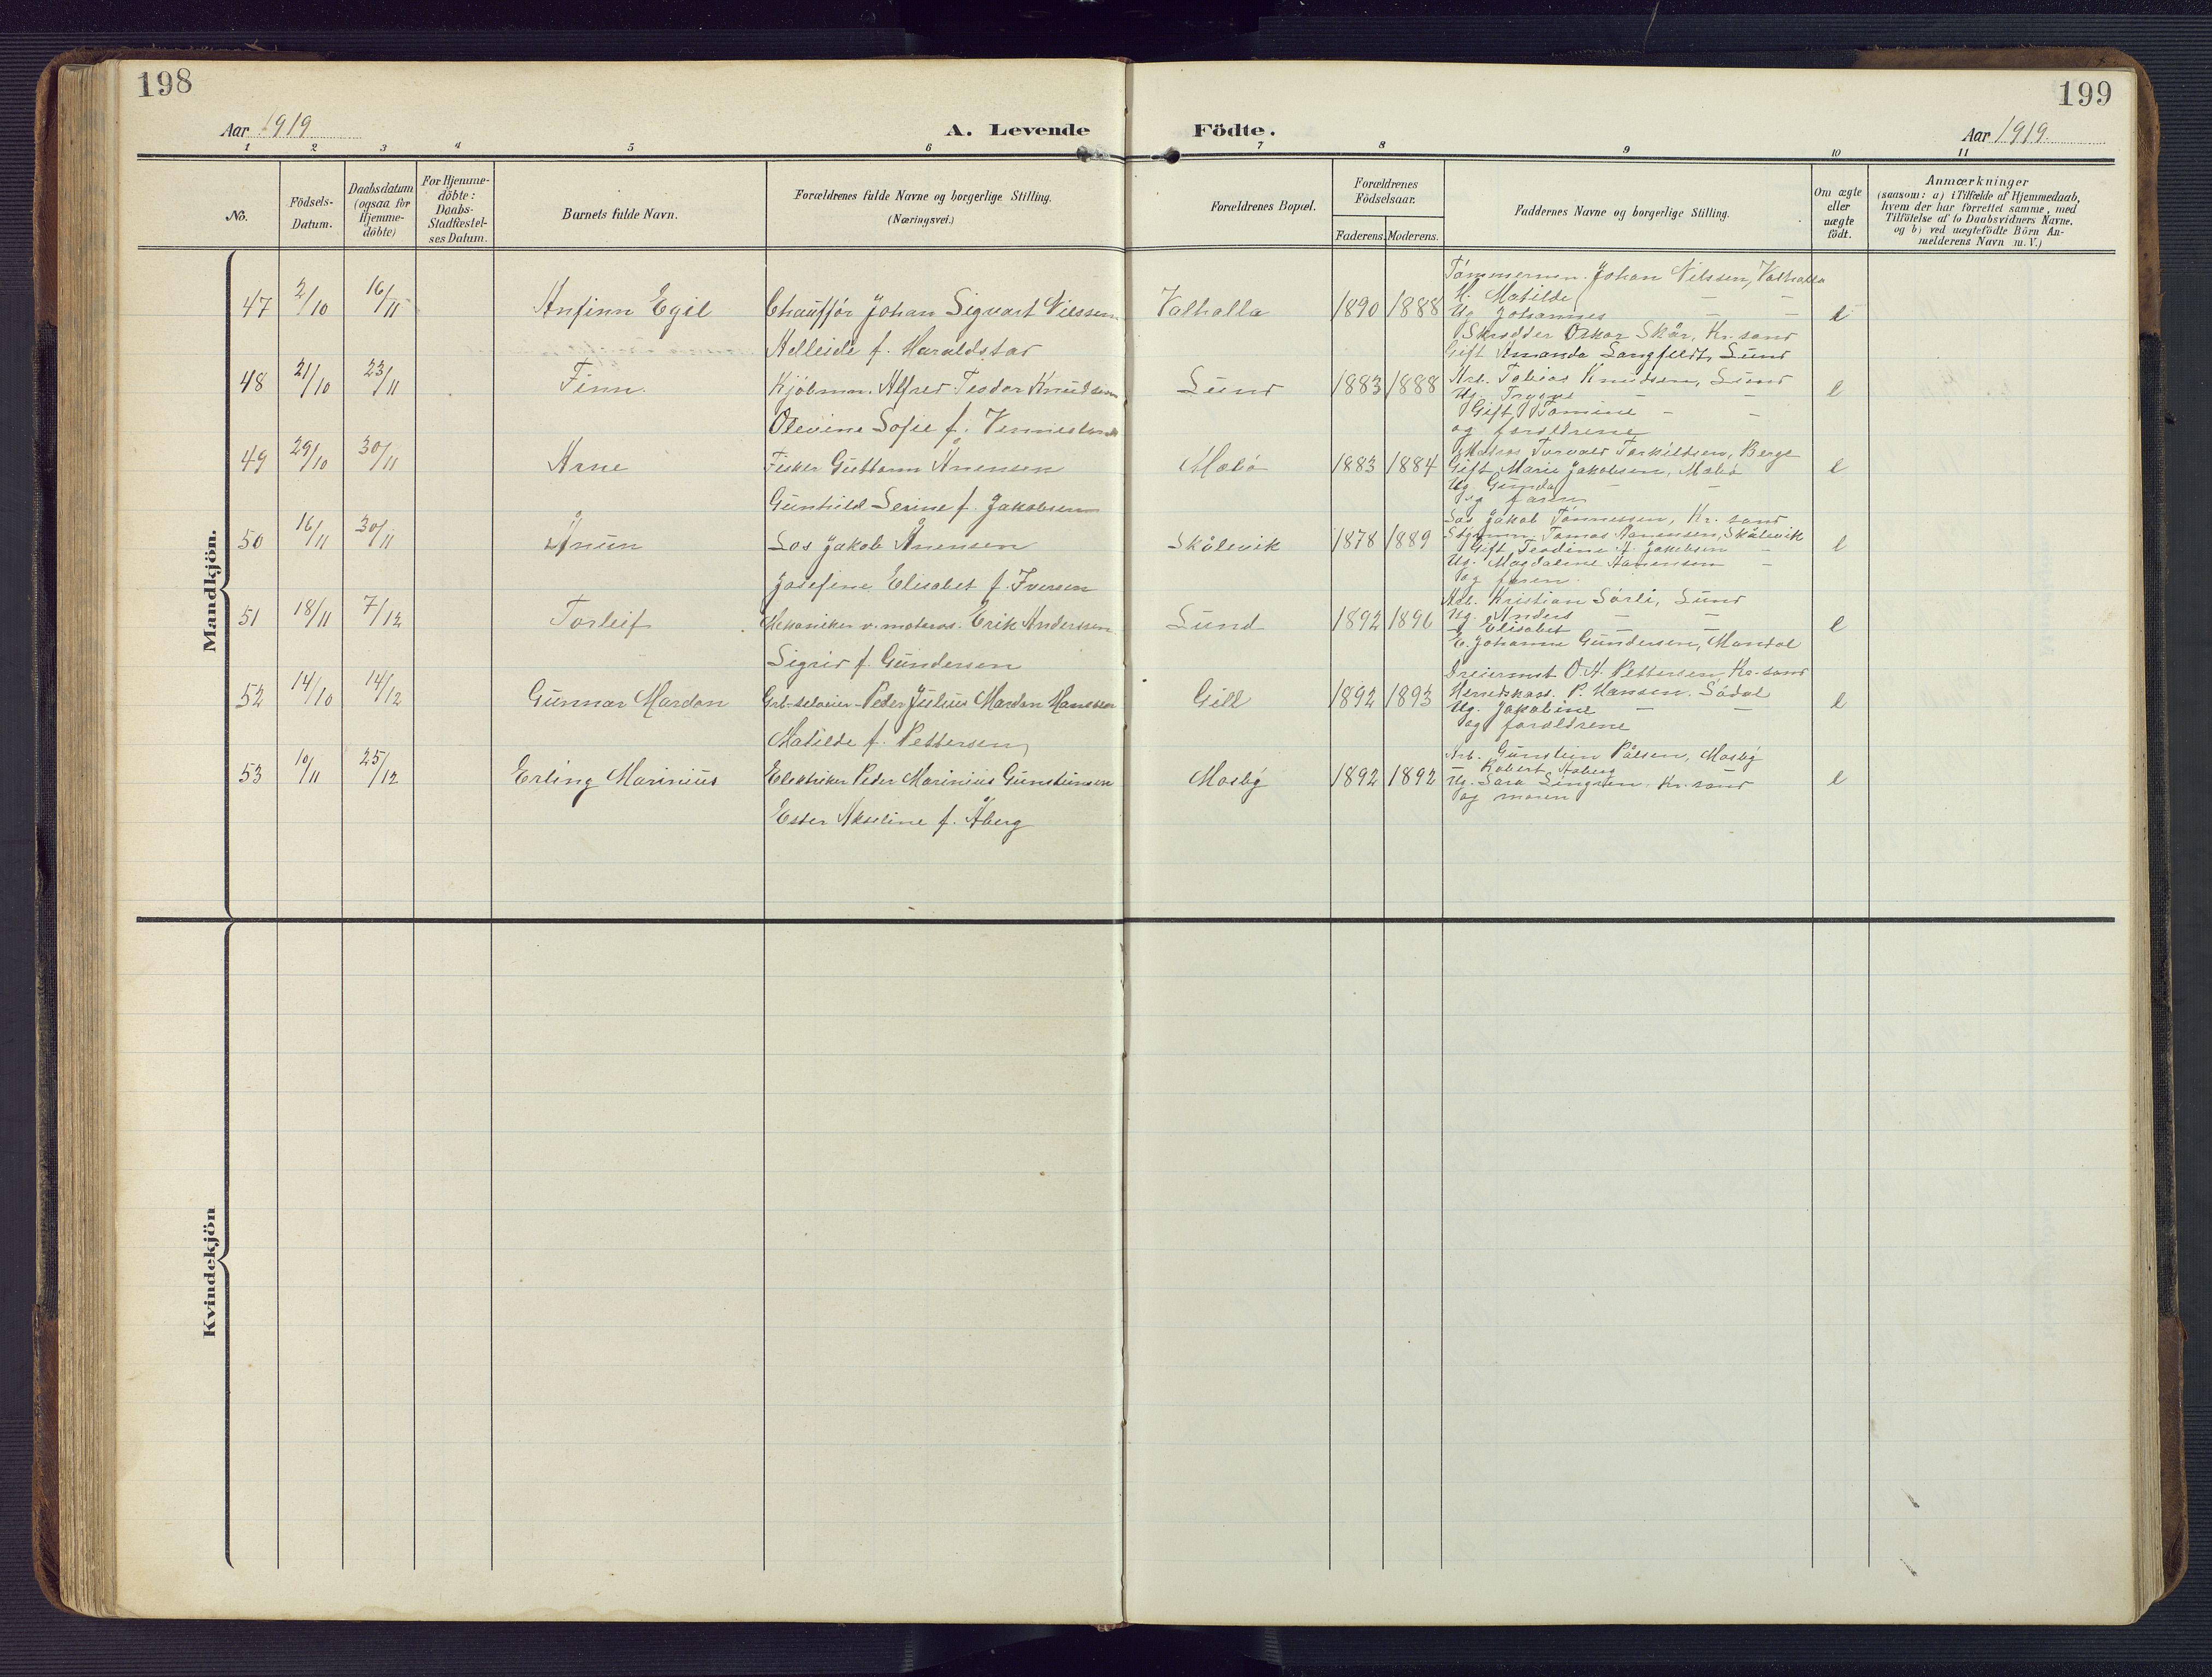 198
199
Aar 1919
A. Levende Födte.
Aar 1919.
1 2 3 4 5 6 7 8 9 10 11
No.
Födsels-
Datum.
Daabsdatum
(ogsaa for
Hjemme-
döbte)
For Hjemme-
döbte:
Daabs-
Stadfæstel-
ses Datum.
Barnets fulde Navn.
Forældrenes fulde Navne og borgerlige Stilling.
(Næringsvei.)
Forældrenes Bopæl.
Forældrenes
Födselsaar.
Faderens. Moderens.
Faddernes Navne og borgerlige Stilling.
Om ægte
eller
uægte
födt.
Anmærkninger
(saasom: a) i Tilfælde af Hjemmedaab,
hvem der har forrettet samme, med
Tilföielse af to Daabsvidners Navne,
og b) ved uægtefödte Börn An-
melderens Navn m. V.)
Mandkjön.
47 2/10 16/11 Anfinn Egil Chauffør Johan Sigvart Nilssen Valhalla 1890 1888
f. Haraldstad
Johan Nilssen, Valhalla
H. Matilde — —
Ug. Johannes — —
Skrædder Oskar Skår, Kr.sand
Gift Amanda Langfeldt, Lund
48 21/10 23/11 Finn. Kjøbmn. Alfred Teodor Knudsen Lund 1883 1888 e
Olevine Sofie f.
Arb. Tobias Knudsen, Lund
Ug. Trygve — —
Gift Tomine — —
og forældrene
49 29/10 30/11 Arne Fisker Guttorm Ånensen 1883 1884 e
Gunhild Serine f. Jakobsen
Matros Torvald Torkildsen, Berge
Gift Marie Jakobsen,
Ug. Gunda — —
og faren
50 16/11 30/11 Ånun Los Jakob Ånensen Skålevik 1878 1889 e
Josefine Elisabet f. Iversen
Los Jakob Tønnessen, Kr. sand
Tomas Aanensen, Skålevik
Gift Teodine A. Jakobsen —
Ug. Magdalene Aanensen —
og faren.
51 18/11 7/12 Torleif Mekaniker v. motoros. Erik Anderssen Lund 1892 1896 e
Sigrid f. Gundersen
Arb. Kristian Sørli, Lund
Ug. Anders — —
Elisabet — —
E. Johanne Gundersen, Mandal
52 14/10 14/12 Gunnar Mardon Peder Julius Mardon Hanssen Gill 1892 1893 e
Matilde f. Pettersen
Dreiermst O. A. Pettersen, Kr.sand
P. Hansen. Sødal
Ug. Jakobine — —
og forældrene
53 10/11 25/12 Erling Marinius Elektriker Peder Marinius Gunsteinsen Mosby 1892 1892 e
Ester Akseline f. Åberg
Arb. Gunstein Pålsen, Mosby
— Robert Aaberg
Ug. Sara Lingren. Kr.sand
og moren
Kvindekjön